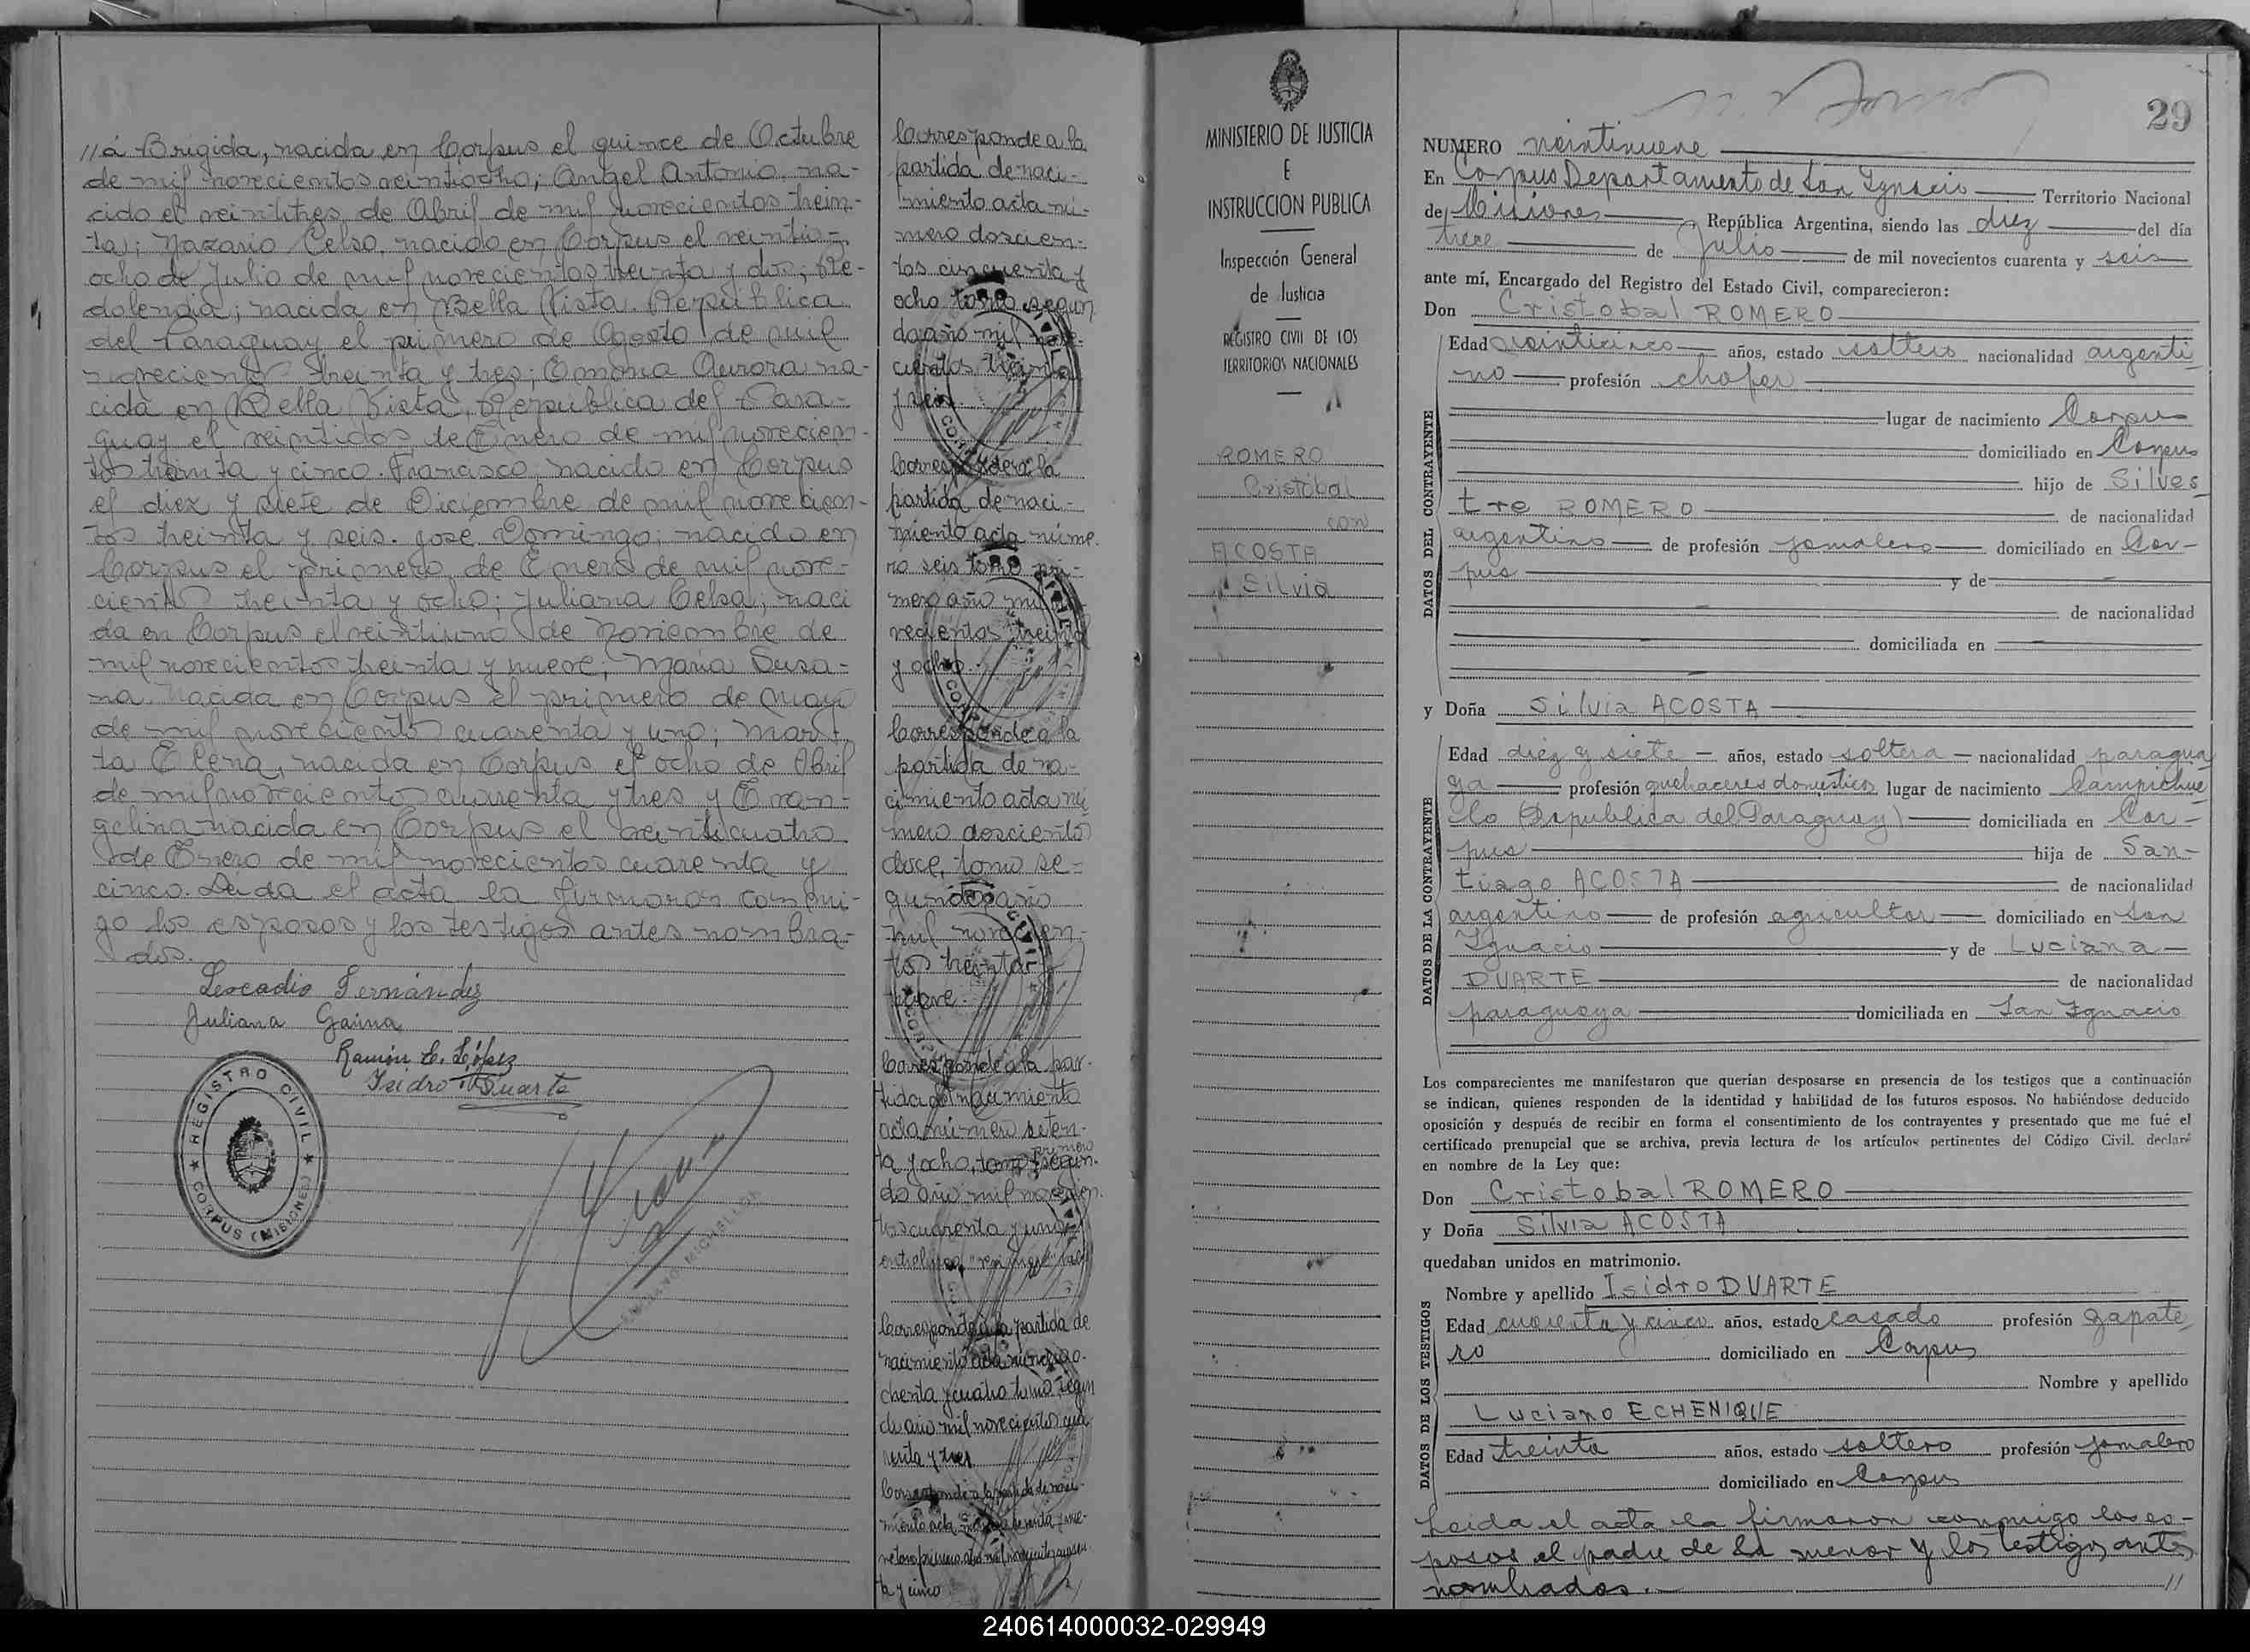 //á Brigida, nacida en Corpus el quince de Octubre
de mil novecientos veintiocho; Angel Antonio na-
cido el veintitres de Abril de mil novecientos trein-
ta; Nazario Celso, nacido en Corpus el veinti-
ocho de Julio de mil novecientos treinta y dos; Re-
dolencia; nacida en Bella Vista República
del Paraguay el primero de Agosto de mil
novecientos treinta y tres; Emona Aurora na-
cida en Bella Vista, República del Para-
guay el veintidos de Enero de mil novecien-
tos treinta y cinco. Francisco nacido en Corpus
el diez y siete de Diciembre de mil novecien-
tos treinta y seis. José Domingo; nacido en
Corpus el primero de Enero de mil nove-
cientos treinta y ocho; Juliana Celsa; naci
da en Corpus el veintiuno de Noviembre de
mil novecientos treinta y nueve; Maria Susa-
na nacida en Corpus el primero de mayo
de mil novecientos cuarenta y uno; Mari-
ta Elena, nacida en Corpus el ocho de Abril
de mil novecientos cuarenta y tres y Evan-
gelina nacida en Corpus el veinticuatro
de Enero de mil novecientos cuarenta y
cinco. Leida el acta la firmaron conmi-
go los esposos y los testigos antes nombra-
dos.
Leocadio Fernández
Juliana Gauna
Ramón C. López
Isidro Duarte
REGISTRO CIVIL
CORPUS (MISIONES)
Corresponde a la
partida de naci-
miento acta nú-
mero doscien-
tos cincuenta y
ocho tomo segun
do año mil nove-
cientos treinta
y seis.
Corresponde a la
partida de naci-
miento acta núme.
ro seis tomo pri-
mero año mil no
vecientos treinta
y ocho.
Corresponde a la
partida de na-
cimiento acta nú
mero doscientos
doce, tomo se-
gundo año
mil novecien-
tos treinta y
nueve.
Corresponde a la par-
tida de nacimiento
acta número seten-
ta y ocho, tomo segun-
primero
do año mil novecien-
tos cuarenta y uno
entrelineas "primero" vale
Corresponde a la partida de
nacimiento acta número o-
chenta y cuatro tomo segun
do año mil novecientos cua
renta y tres
Corresponde a la partida de naci-
miento acta
ta y cinco
MINISTERIO DE JUSTICIA
E
INSTRUCCION PUBLICA
Inspección General
de Justicia
REGISTRO CIVIL DE LOS
TERRITORIOS NACIONALES
ROMERO
Cristóbal
con
ACOSTA
Silvia
29
NUMERO veintinueve
En Corpus Departamento de San Ignacio Territorio Nacional
de Misiones, República Argentina, siendo las diez del día
trece de Julio de mil novecientos cuarenta y seis
ante mí, Encargado del Registro del Estado Civil, comparecieron:
Don Cristobal ROMERO
DATOS DEL CONTRAYENTE
Edad veinticinco años, estado soltero nacionalidad argenti
no profesión chofer
lugar de nacimiento Corpus
domiciliado en Corpus
hijo de Silves
tre ROMERO de nacionalidad
argentino de profesión jornalero domiciliado en Cor-
pus y de
de nacionalidad
domiciliada en
y Doña Silvia ACOSTA
DATOS DE LA CONTRAYENTE
Edad diez y siete años, estado soltera nacionalidad paragua
ya profesión quehaceres domésticos lugar de nacimiento Campichue
lo (República del Paraguay) domiciliada en Cor-
pus hija de San-
tiago ACOSTA de nacionalidad
argentino de profesión agricultor domiciliado en San
Ignacio y de Luciana
DUARTE de nacionalidad
paraguaya domiciliada en San Ignacio
Los comparecientes me manifestaron que querían desposarse en presencia de los testigos que a continuación
se indican, quienes responden de la identidad y habilidad de los futuros esposos. No habiéndose deducido
oposición y después de recibir en forma el consentimiento de los contrayentes y presentado que me fué el
certificado prenupcial que se archiva, previa lectura de los artículos pertinentes del Código Civil, declaré
en nombre de la Ley que:
Don Cristobal ROMERO
y Doña Silvia ACOSTA
quedaban unidos en matrimonio.
DATOS DE LOS TESTIGOS
Nombre y apellido Isidro DUARTE
Edad cuarenta y cinco años, estado casado profesión zapate
ro domiciliado en Corpus
Nombre y apellido
Luciano ECHENIQUE
Edad treinta años, estado soltero profesión jornalero
domiciliado en Corpus
Leida el acta la firmaron conmigo los es-
posos el padre de la menor y los testigos antes
nombrados. //
240614000032-029949